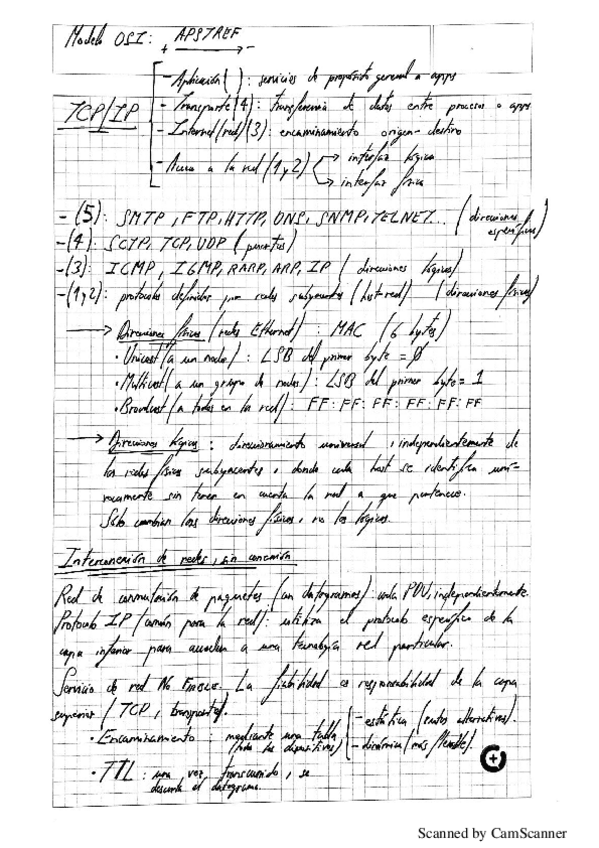 Modelo OSI: APSTREF
+ -
TCP/IP
- Aplicación ( ): servicios de propósito general a apps
- Transporte (4): transferencia de datos entre procesos o apps
- Internet/red (3): encaminamiento origen-destino
- Acceso a la red (1 y 2) → interfaz lógica
→ interfaz física
- (5): SMTP, FTP, HTTP, DNS, SNMP, TELNET... (direcciones específicas)
- (4): SCTP, TCP, UDP (puertos)
- (3): ICMP, IGMP, RARP, ARP, IP (direcciones lógicas)
- (1 y 2): protocolos definidos por redes subyacentes (host-red) (direcciones físicas)
→ Direcciones físicas (redes Ethernet): MAC (6 bytes)
• Unicast (a un nodo): LSB del primer byte = 0
• Multicast (a un grupo de nodos): LSB del primer byte = 1
• Broadcast (a todos en la red): FF:FF:FF:FF:FF:FF
→ Direcciones lógicas: direccionamiento universal, independientemente de
las redes físicas subyacentes, donde cada host se identifica uní-
vocamente sin tener en cuenta la red a que pertenece.
Sólo cambian las direcciones físicas, no las lógicas.
Interconexión de redes, sin conexión
Red de conmutación de paquetes (con datagramas): cada PDU, independientemente.
Protocolo IP (común para la red): utiliza el protocolo específico de la
capa inferior para acceder a una tecnología red particular.
Servicio de red NO FIABLE. La fiabilidad es responsabilidad de la capa
superior (TCP, transporte).
• Encaminamiento: mediante una tabla - estática (rutas alternativas).
(todos los dispositivos) - dinámica (más flexible).
• TTL: una vez transcurrido, se
descarta el datagrama.
Scanned by CamScanner